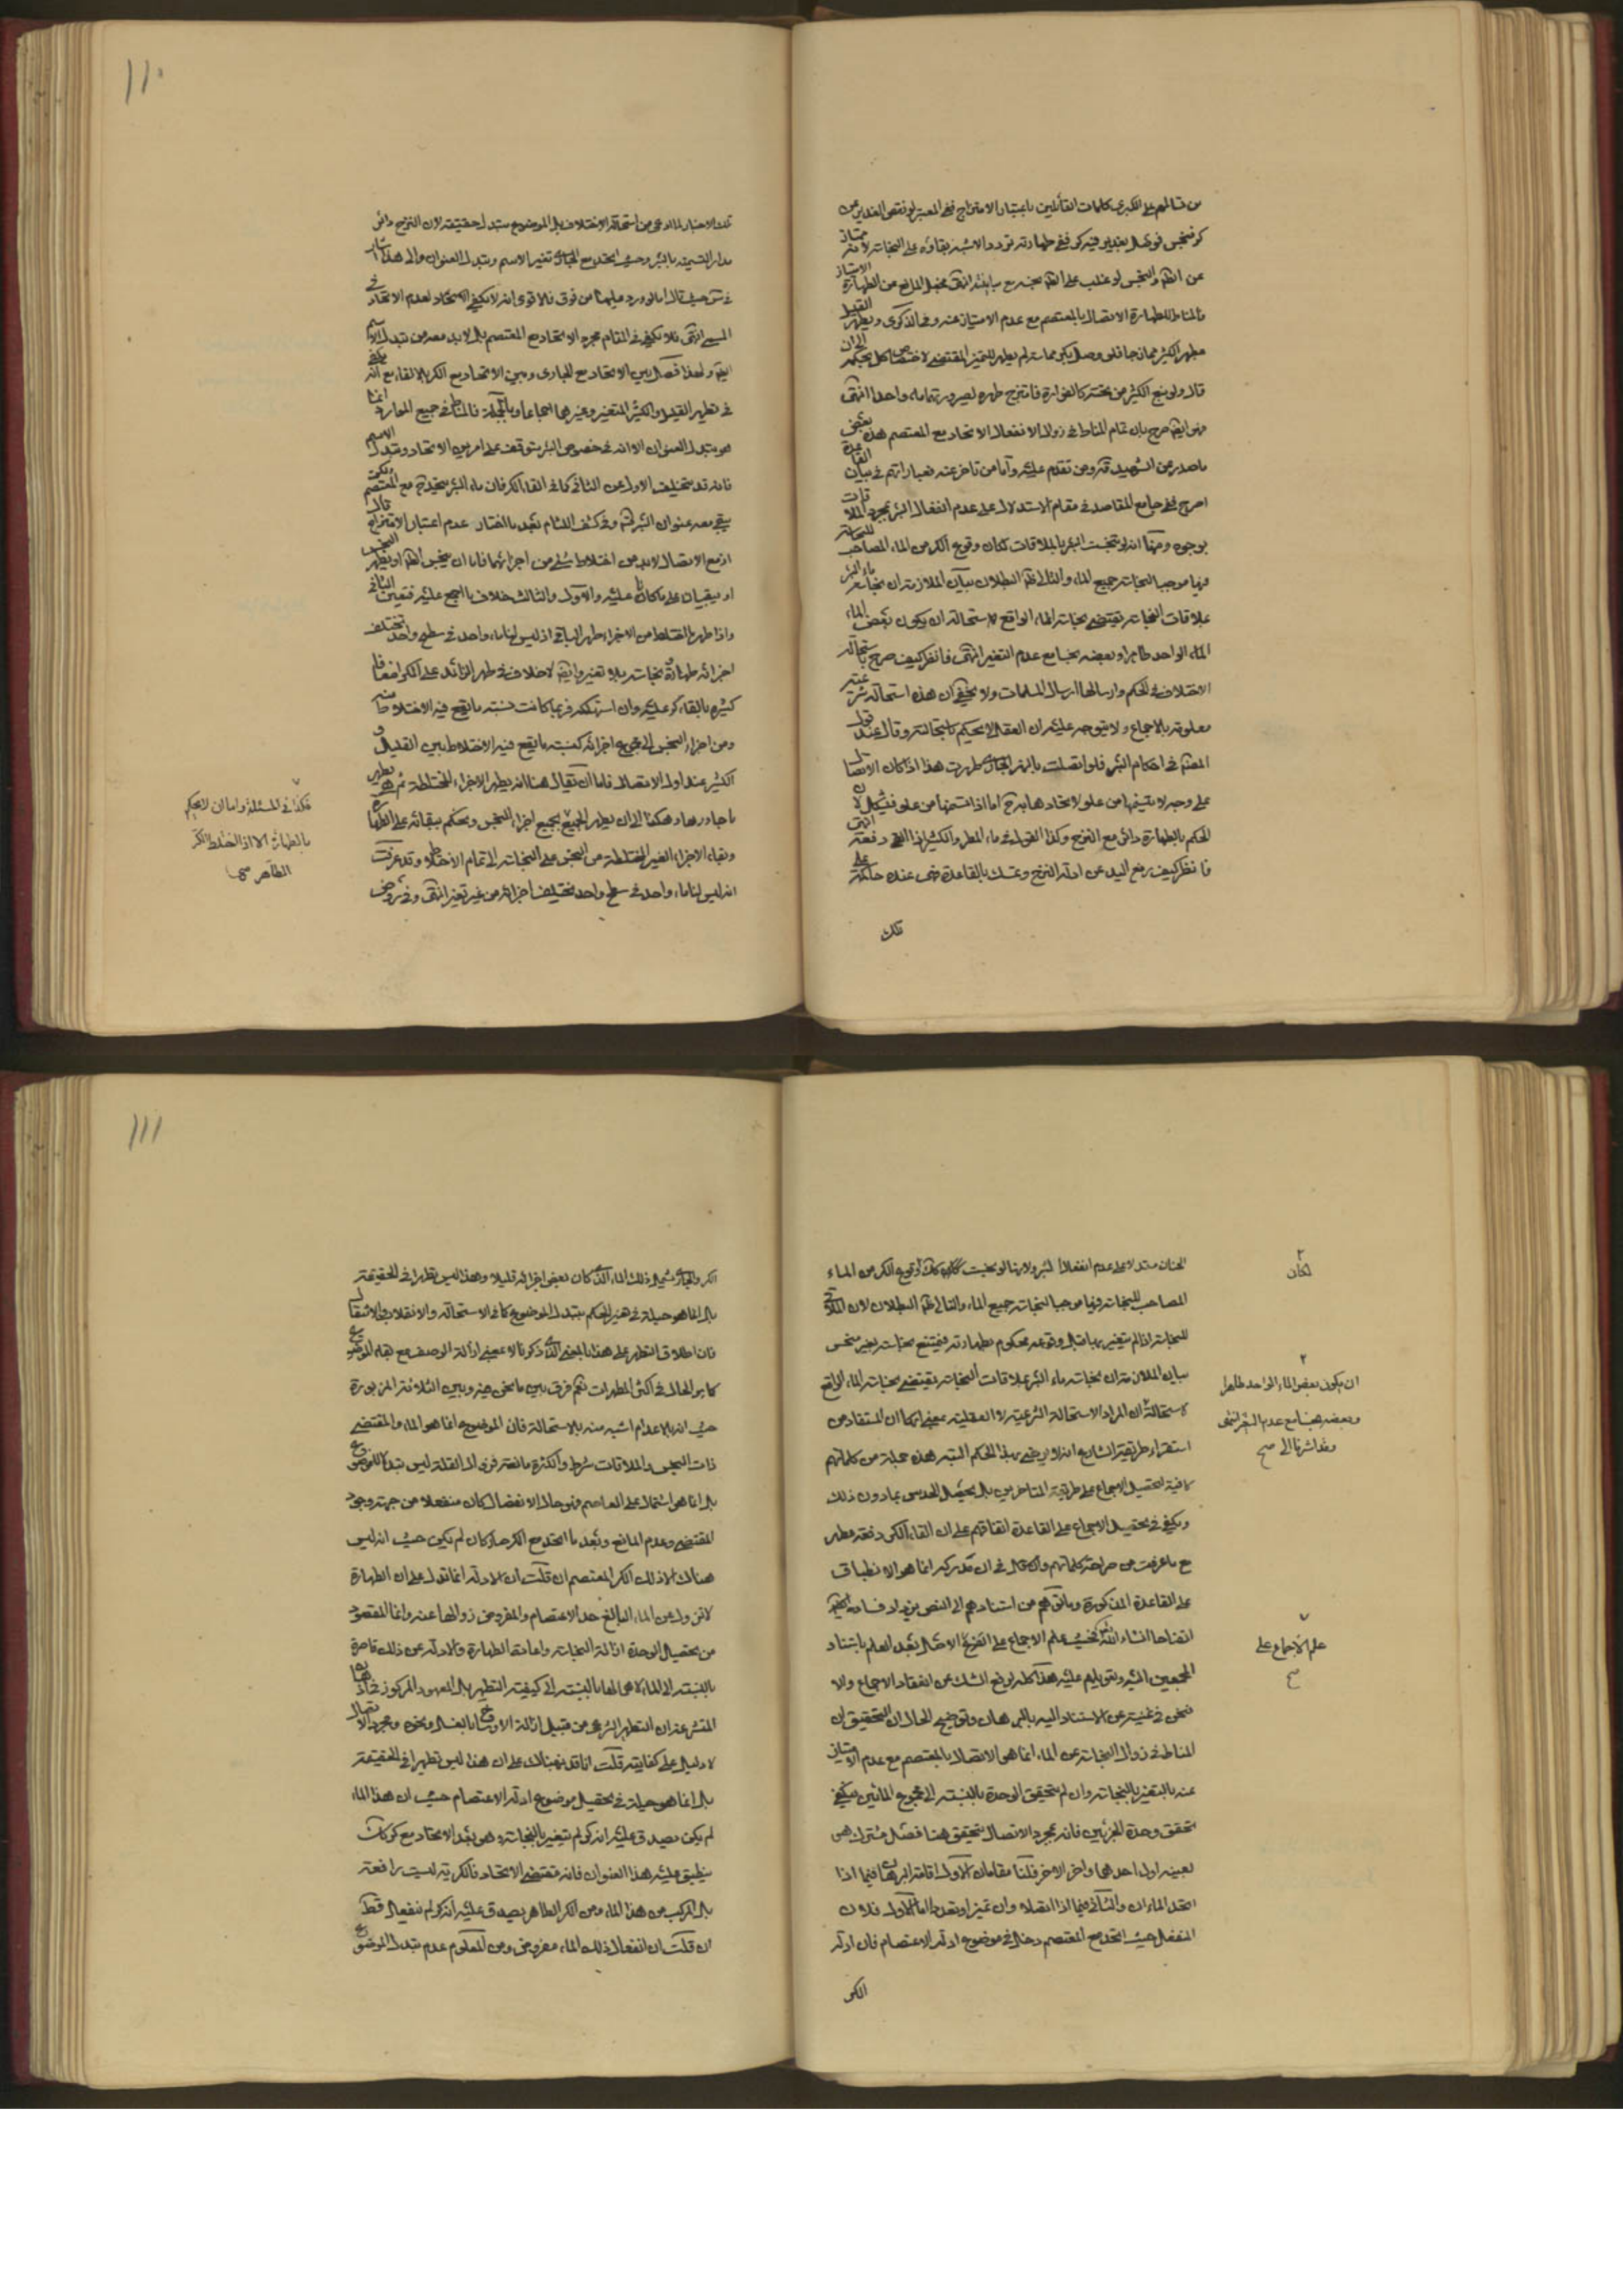 من تسالمهم على الكبرى كلمات القائلين باعتبار الامتزاج ففى المعتبر لو نقص الغدير عن
كر فنجس فوصل بغدير فيه كر ففى طهارته تردد والاشبه بقاؤه على النجاسة لانه ممتاز
عن الطاهر والنجس لو غلب على الطاهر نجسه مع مباينته انتهى فجعل المانع من الطهارة الامتياز
فالمناط للطهارة الاتصال بالمعتصم مع عدم الامتياز عنه وفى الذكرى ويطهر القليل
بمطهر الكثير ممازجا فلو وصل بكر مماسة لم يطهر للتميز المقتضى لاختصاص كل بحكمه
قال ولو نبع الكثير من تحته كالفوارة فامتزج طهره لصيرورتهما ماء واحدا انتهى
فهو ايضا صرح بان تمام المناط فى زوال الانفعال الاتحاد مع المعتصم هذه بعض
ما صدر عن الشهيد قده ومن تقدم عليه واما من تاخر عنه فعباراتهم فى بيان القاعدة
اصرح ففى جامع المقاصد فى مقام الاستدلال على عدم انفعال البئر بمجرد الملاقات
بوجوه ومنها انه لو نجست البئر بالملاقات لكان وقوع الكر من الماء المصاحب للنجاسة
فيها موجبا لنجاسة جميع الماء والتالى ظاهر البطلان بيان الملازمة ان نجاسة ماء البئر
بملاقات النجاسة يقتضى نجاسة الماء الواقع لاستحالة ان يكون بعض الماء
الماء الواحد طاهرا وبعضه نجسا مع عدم التغير انتهى فانظر كيف صرح باستحالة
الاختلاف فى الحكم وارسالها ارسال المسلمات ولا يخفى ان هذه استحالة شرعية
معلومة بالاجماع ولا يتوجه عليه ان العقل لا يحكم باستحالته وقال عند قول
المصنف فى احكام البئر فلو اتصلت بالنهر الجارى طهرت هذا اذا كان الاتصال
على وجه لا يتسنمها من علو لاتحادها به ح اما اذا تسنمها من علو فيشكل لان
الحكم بالطهارة دائر مع النزح وكذا القول فى ماء المطر والكثير اذا القى دفعة انتهى
فانظر كيف رفع اليد عن ادلة النزح وتمسك بالقاعدة فهى عنده حاكمة على
تلك
١١٠
تلك الاخبار لما ادعى من استحالة الاختلاف بل الموضوع يتبدل حقيقة لان النزح دائر
مدار التسمية بالبئر وحيث اتحد مع الجارى تغير الاسم وتبدل العنوان والى هذا اشار
فى حيث قال اما لو ورد عليها من فوق فالاقوى انه لا يكفى لعدم الاتحاد فى
المسمى انتهى فلا يكفى فى المقام مجرد الاتحاد مع المعتصم بل لابد معه من تبدل الاسم
ايضا ولهذا فصل بين الاتحاد مع الجارى وبين الاتحاد مع الكر بالالقاء مع انه يكفى
فى تطهير القليل والكثير المتغير وغيرهما اجماعا وبالجملة فالمناط فى جميع الموارد انما
هو تبدل العنوان الا انه فى خصوص البئر يتوقف على امرين الاتحاد وتبدل الاسم
فانه قد يتخلف الاول عن الثانى كما فى القاء الكر فان ماء البئر يتحد ح مع المعتصم ولكن
يبقى معه عنوان البئرية وفى كشف اللثام بعد ما اختار عدم اعتبار الامتزاج قال
اذ مع الاتصال لابد من اختلاط شئ من اجزائهما فاما ان ينجس الطاهر او يطهر النجس
او يبقيان على ما كانا عليه والاول والثالث خلاف ما اجمع عليه فتعين الثانى
واذا طهر المختلط من الاجزاء طهر الباقى اذ ليس لنا ماء واحد فى سطح واحد تختلف
اجزائه طهارة ونجاسة بلا تغير وايضا لا خلاف فى طهر الزائد على الكر اضعافا
كثيرة بالقاء كر عليه وان استهلكه فربما كانت نسبة ما يقع فيه الاختلاط منه
ومن اجزاء النجس الى جميع اجزائه كنسبة ما يقع فيه الاختلاط بين القليل و
الكثير عند اول الاتصال فاما ان يقال هنا انه يطهر الاجزاء المختلطة ثم هى تطهر
ما جاورها وهكذا الى ان يطهر الجميع بجميع اجزاء النجس ويحكم ببقائه على الطهارة
وبقاء الاجزاء الغير المختلطة من النجس على النجاسة الى تمام الاختلاط وقد عرفت
انه ليس لنا ماء واحد فى سطح واحد يختلف اجزائه من غير تغير انتهى وفى شرح
فكذا فى المسئلة واما ان لا يحكم
بالطهارة الا اذا اختلط الكر
الطاهر صح
الجنان مستدلا على عدم انفعال البئر ولانها لو نجست لكان وقوع الكر من الماء
المصاحب للنجاسة فيها موجبا لنجاسة جميع الماء والتالى ظاهر البطلان لان الملاقى
للنجاسة اذا لم يتغير بها قبل وقوعه محكوم بطهارته فيمتنع نجاسته بغير منجس
بيان الملازمة ان نجاسة ماء البئر بملاقات النجاسة يقتضى نجاسة الماء الواقع
لاستحالة ان المراد الاستحالة الشرعية لا العقلية بمعنى انها ان المستفاد من
استقراء طريقة الشارع انه لا يرضى بهذا الحكم البتة هذه جملة من كلماتهم
كافية لتحصيل الاجماع على طريقة المتاخرين بل يحصل الحدس بما دون ذلك
ويكفى فى تحصيل الاجماع على القاعدة اتفاقهم على ان القاء الكر دفعة مطهر
مع ما عرفت من صراحة كلماتهم والاشكال فى ان مدركه انما هو الانطباق
على القاعدة المذكورة وما توهم من استنادهم الى النص يزيد فساده
اتضاحا انشاء الله فحيث علم الاجماع على الاتصال بعد العلم باستناد
المجمعين اليه وتعويلهم عليه هذا كله لرفع الشك عن انعقاد الاجماع والا
فنحن فى غنية عن الاستناد اليه بالبرهان وتوضيح الحال ان التحقيق ان
المناط فى زوال النجاسة عن الماء انما هى الاتصال بالمعتصم مع عدم الامتياز
عنه بالتغير بالنجاسة وان لم يتحقق الوحدة بالنسبة الى مجموع المائين فيكفى
تحقق وحدة الجزئين فانه بمجرد الاتصال يتحقق هنا فصل مشترك هى
بعينه اول احدهما واخر الاخر فلنا مقامان الاول اقامة البرهان فيما اذا
اتحد الماءان والثانى فيما اذا اتصلا وان تميزا وتعددا اما الاول فلان
المنفعل حيث اتحد مع المعتصم دخل فى موضوع ادلة الاعتصام فان ادلة
الكر
لكان
ان يكون بعض الماء الواحد طاهرا
وبعضه نجسا مع عدم التغير انتهى
وقد اشرنا الى صح
علم الاجماع على
صح
١١١
الكر والجارى يشمل ذلك الماء الذى كان بعض اجزائه قليلا وهذا ليس تطهرا فى الحقيقة
بل انما هو حيلة فى تغير الحكم بتبدل الموضوع كما فى الاستحالة والانقلاب والانتقال
فان اطلاق التطهر على هذا بالمعنى الذى ذكرنا لا بمعنى ازالة الوصف مع بقاء الموضوع
كما هو الحال فى اكثر المطهرات نعم فرق بين ما نحن فيه وبين الثلاثة المزبورة
حيث انه بالاعدام اشبه منه بالاستحالة فان الموضوع انما هو الماء والمقتضى
ذات النجس والملاقات شرط والكثرة مانعة فزوال القلة ليس تبدلا للموضوع
بل انما هو اشتمال على العاصم فهو حال الانفصال كان منفعلا من جهة وجود
المقتضى وعدم المانع وبعد ما اتحد مع الكر صار كان لم يكن حيث انه ليس
هناك الا ذلك الكر المعتصم ان قلت ان الادلة انما تدل على ان الطهارة
لا تزول عن الماء البالغ حد الاعتصام والمفروض زوالها عنه وانما المقصود
من تحصيل الوحدة ازالة النجاسة واعادة الطهارة والادلة عن ذلك قاصرة
بالنسبة الى الماء كما هى الحال بالنسبة الى كيفية التطهير بل المعهود المركوز فى اذهان
المتشرعة ان التطهير الشرعى من قبيل ازالة الاوساخ بالغسل ونحوه ومجرد الاتصال
لا دليل على كفايته قلت انا قد نبهناك على ان هذا ليس تطهيرا فى الحقيقة
بل انما هو حيلة فى تحصيل موضوع ادلة الاعتصام حيث ان هذا الماء
لم يكن يصدق عليه انه كر لم يتغير بالنجاسة وهى بعد الاتحاد مع كر كان
ينطبق عليه هذا العنوان فانه مقتضى الاتحاد فالكرية ليست رافعة
بل المركب من هذا الماء ومن الكر الطاهر يصدق عليه انه كر لم ينفعل قط
ان قلت ان انفعال ذلك الماء مفروض ومن المعلوم عدم تبدل الموضوع